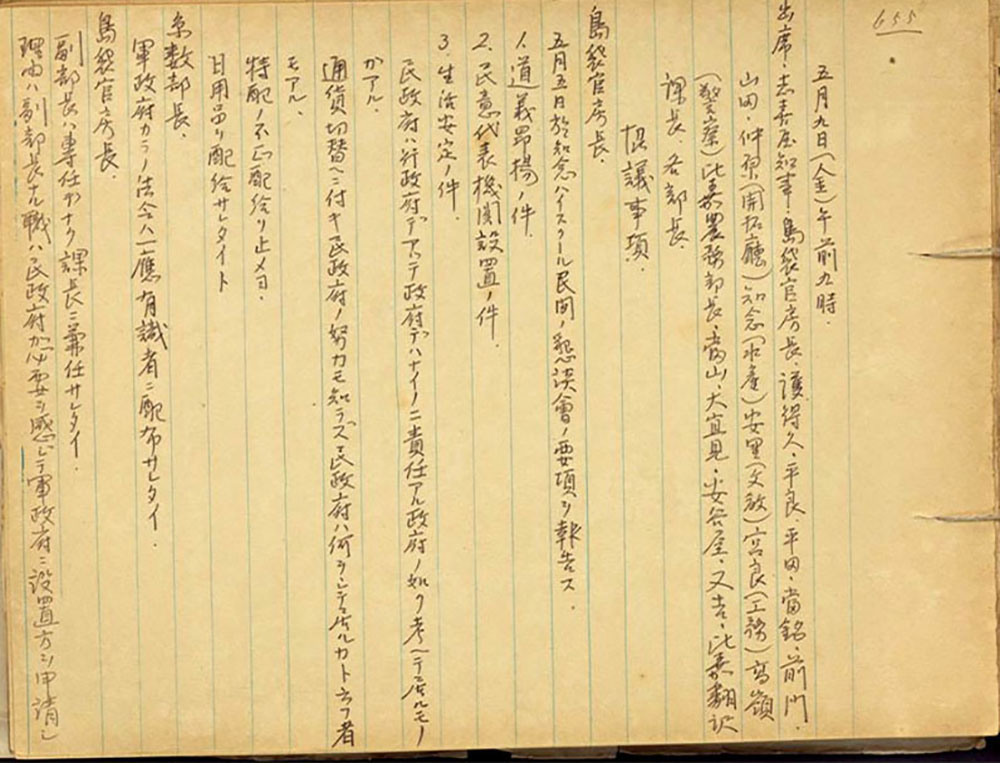 655
五月九日(金)午前九時.
出席.志喜屋知事.島袋官房長.護得久.平良.平田.當銘.前門.
山田.仲村(開拓廳)知念(水産)安里(文教)宮良(工務)高嶺
(警察)比嘉農務部長.當山.大宜見.安谷屋.又吉.比嘉翻訳
課長.各部長.
協議事項.
島袋官房長.
五月五日於知念ハイスクール民間ノ懇談會ノ要項ヲ報告ス.
1.道義昂揚ノ件.
2.民意代表機関設置ノ件.
3.生活安定ノ件.
民政府ハ行政府デアッテ政府デハナイノニ責任アル政府ノ如ク考ヘテ居ルモノ
ガアル.
通貨切替ヘニ付キ民政府ノ努力モ知ラズ民政府ハ何ヲシテ居ルカト云フ者
モアル.
特配ノ不正配給ヲ止メヨ.
日用品ヲ配給サレタイト
糸数部長.
軍政府カラノ法令ハ一應有識者ニ配布サレタイ.
島袋官房長.
副部長ハ専任デナク課長ニ兼任サレタイ.
理由ハ副部長ナル職ハ民政府ガ必要ヲ感ジテ軍政府ニ設置方ヲ申請シ